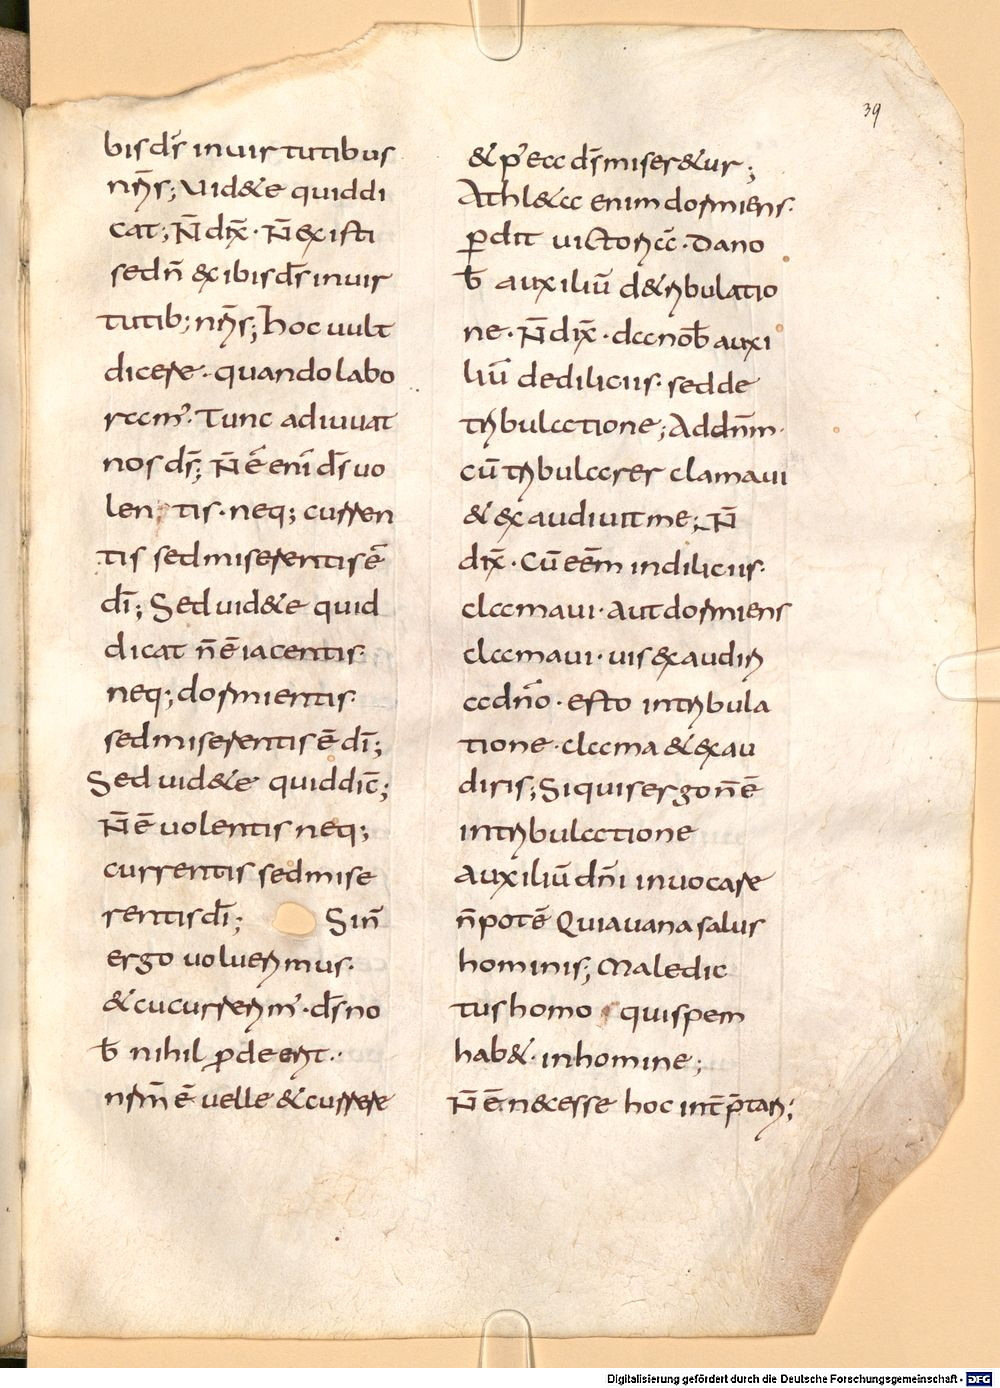 39
bis ds̄ in uirtutibus
nr̄is; Uid&e quid di
cat; N̄ dix̄. N̄ existi
sed n̄ exibis ds̄ in uir
tutib; nr̄is; hoc uult
dicere. quando labo
ram'. Tunc adiuuat
nos ds̄; N̄ ē enī ds̄ uo
lentis. neq; curren
tis sed miserentis ē
dī; Sed uid&e quid
dicat n̄ ē iacentis.
neq; dormientis.
sed miserentis ē dī;
Sed uid&e quid dic̄;
N̄ ē uolentis neq;
currentis sed mise
rentis dī; Si n̄
ergo uoluerimus.
& cucurrerim'. ds̄ no
b̄ nihil ꝓderit..
nr̄m̄ ē uelle & currere
& p' ea ds̄ miser&ur;
Athl&a enim dormiens.
ꝑdit uictoriā. Da no
b̄ auxiliū de tribulatio
ne. N̄ dix̄. da nob̄ auxi
liū de diliciis. sed de
tribulatione; Ad dn̄m.
cū tribularer clamaui
& exaudiuit me; N̄
dix̄. Cū eēm in diliciis.
clamaui. aut dormiens
clamaui. uis exaudiri
a dn̄o. esto in tribula
tione. clama & exau
diris; Si quis ergo n̄ ē
in tribulatione
auxiliū dn̄i inuocare
n̄ potē Quia uana salus
hominis; Maledic
tus homo qui spem
hab&. in homine;
N̄ ē n&esse hoc int̄p̄tari;
Digitalisierung gefördert durch die Deutsche Forschungsgemeinschaft - DFG